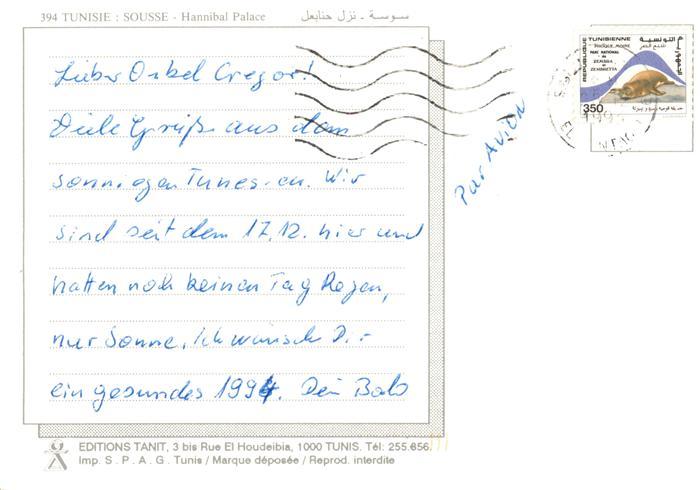 394 TUNISIE : SOUSSE - Hannibal Palace
سوسة - نزل حنابعل
Lieber Onkel Gregor!
Viele Grüße aus dem
sonnigen Tunesien. Wir
sind seit dem 17.12. hier und
hatten noch keinen Tag Regen,
nur Sonne. Ich wünsche Dir
ein gesundes 1994. Dein Bob
Par AVION
REPUBLIQUE TUNISIENNE
PHOQUE MOINE
PARC NATIONAL
DE ZEMBRA
ET ZEMBRETTA
350
EDITIONS TANIT, 3 bis Rue El Houdeibia, 1000 TUNIS. Tél: 255.656.
Imp. S. P. A. G. Tunis / Marque déposée / Reprod. interdite